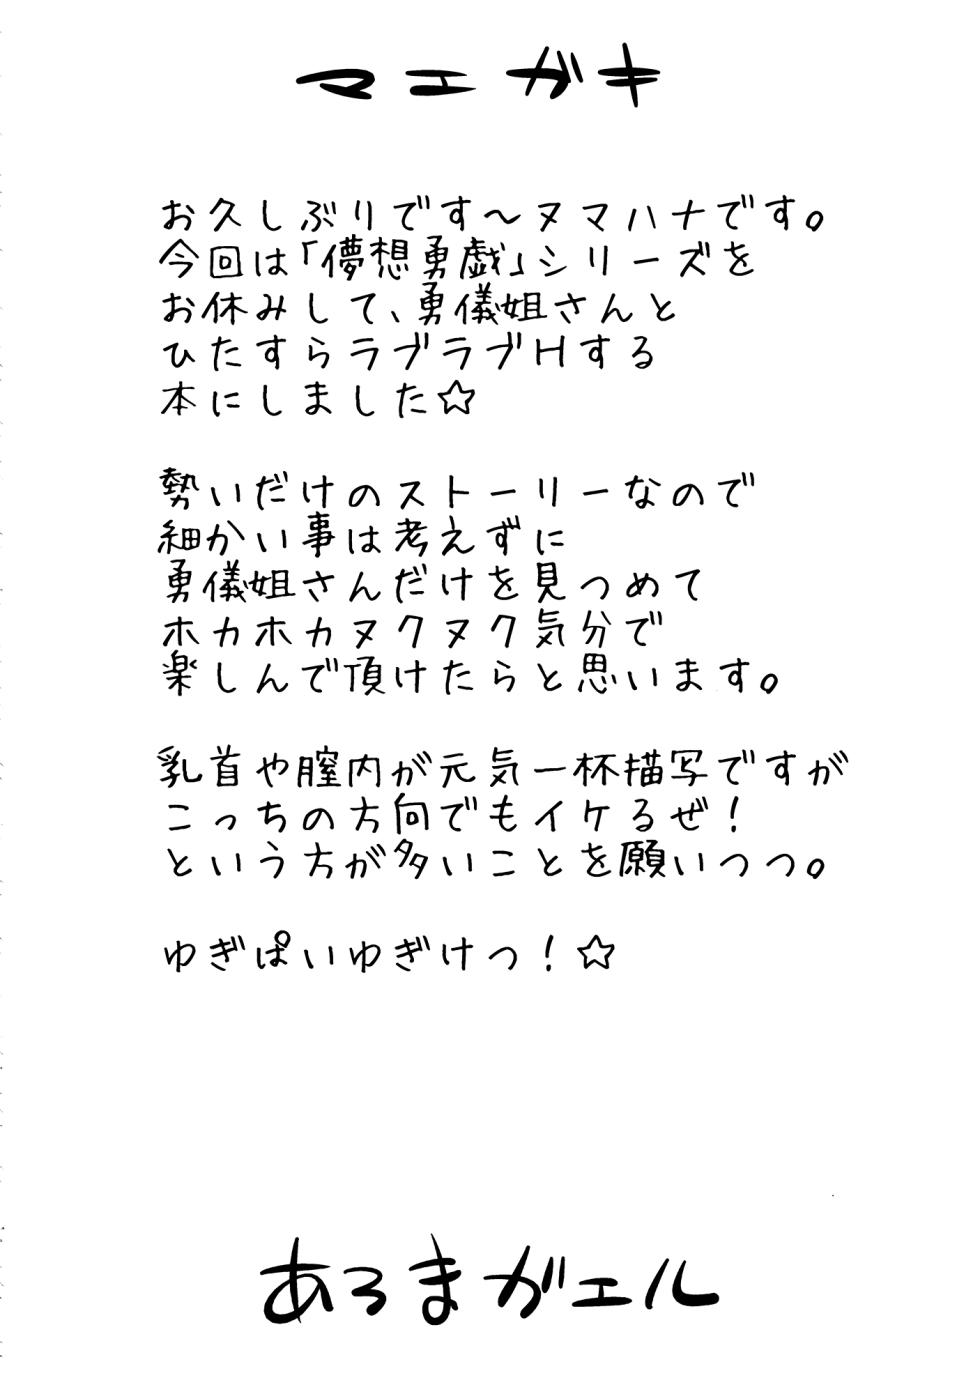 マエガキ
お久しぶりです～ヌマハナです。
今回は「儚想勇戯」シリーズを
お休みして、勇儀姐さんと
ひたすらラブラブHする
本にしました☆
勢いだけのストーリーなので
細かい事は考えずに
勇儀姐さんだけを見つめて
ホカホカヌクヌク気分で
楽しんで頂けたらと思います。
乳首や膣内が元気一杯描写ですが
こっちの方向でもイケるぜ！
という方が多いことを願いつつ。
ゆぎぱいゆぎけっ！☆
あろまガエル